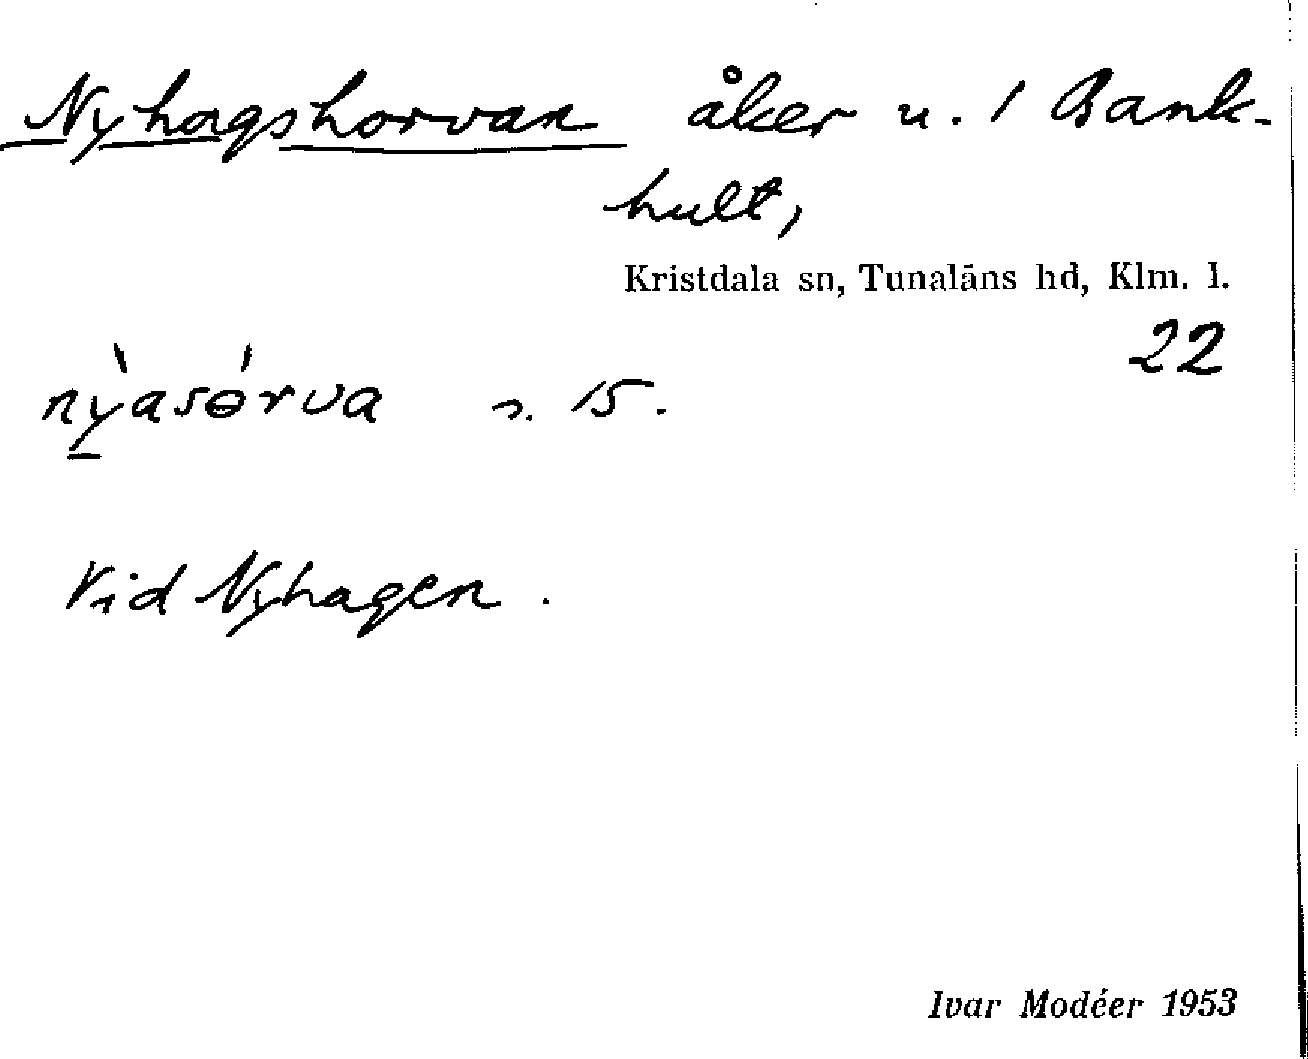 Nyhagshorvan åker u. 1 Bank-
hult,
Kristdala sn, Tunaläns hd, Klm. l.
22
nỳ̠asɵ́rva s. 15.
Vid Nyhagen.
Ivar Modéer 1953